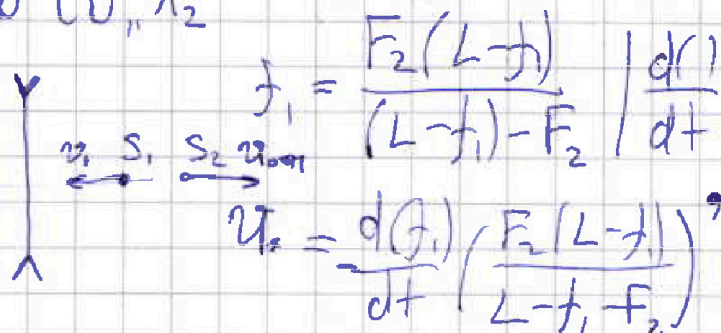 λ₂
f₁ = F₂(L-f₁) / (L-f₁)-F₂ | d() / dt
v₁ S₁ S₂
= d(f₁) / dt ( F₂(L-f₁) / L-f₁-F₂ )'